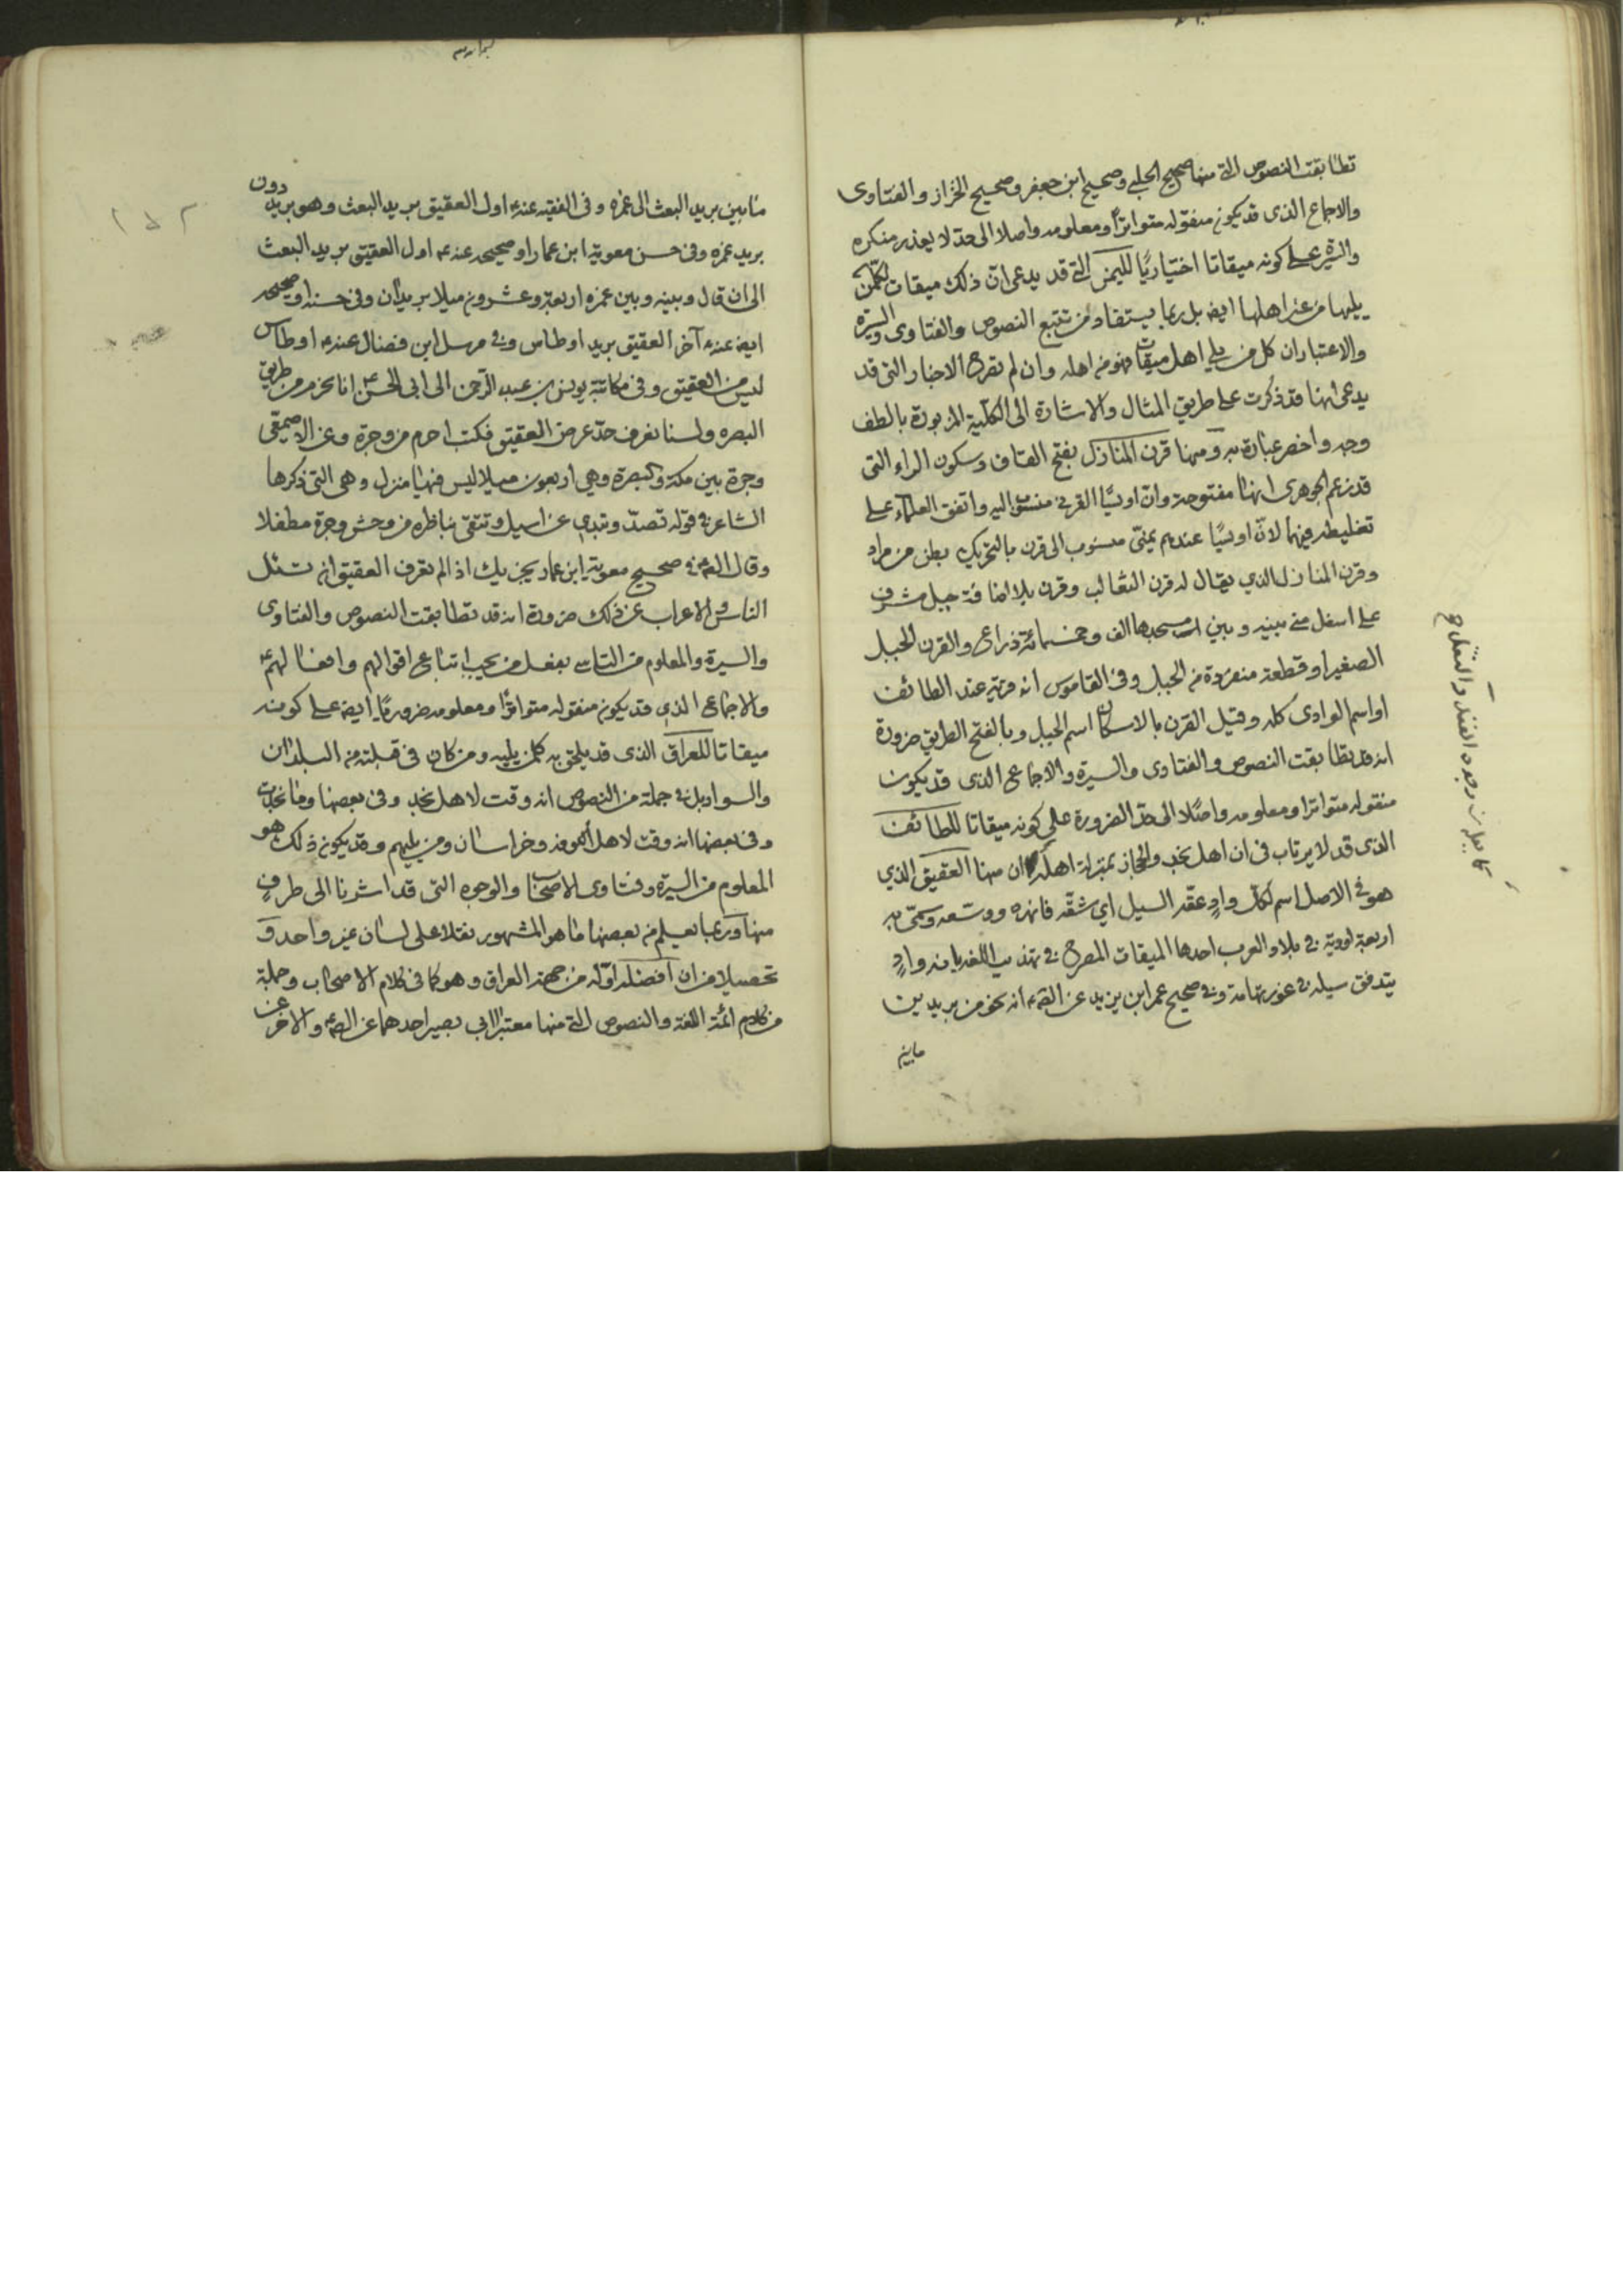 تطابقت النصوص التي منها صحيح الحلبي وصحيح ابن جعفر وصحيح الخزاز والفتاوى
والاجماع الذى قد يكون منقوله متواترًا ومعلومه واصلا الى حدّ لا يعذر منكره
والسيرة على كونه ميقاتا اختياريًا لليمن التي قد يدعى ان ذلك ميقات لكلّ من
يليها من غير اهلها ايضا بل ربما يستفاد من تتبع النصوص والفتاوى والسيرة
والاعتبار ان كل من يلي اهل ميقات فهو من اهله وان لم تصرح الاخبار التى قد
يدعى انها قد ذكرت على طريق المثال والاشارة الى الكلّية المزبورة بالطف
وجه واخصر عبارة ومنها قرن المنازل بفتح القاف وسكون الراء التى
قد زعم الجوهرى انها مفتوحة وانّ اويسًا القرني منسوب اليه واتفق العلماء على
تغليطه فيهما لانّ اويسًا عندهم يمنىّ منسوب الى قرن بالتحريك بطن من مراد
وقرن المنازل الذي يقال له قرن الثعالب وقرن بلا اضافة جبل مشرف
على اسفل منى بينه وبين مسجدها الف وخمسمائة ذراع والقرن الجبل
الصغير او قطعة منفردة من الجبل وفى القاموس انه قرية عند الطائف
او اسم الوادى كله وقيل القرن بالاسكان اسم الجبل وبالفتح الطريق ضرورة
انه قد تطابقت النصوص والفتاوى والسيرة والاجماع الذى قد يكون
منقوله متواترا ومعلومه واصلًا الى حدّ الضرورة على كونه ميقاتا للطائف
الذى قد لا يرتاب فى ان اهل نجد والحجاز بمنزلة اهله ان منها العقيق الذي
هو في الاصل اسم لكل وادٍ عقّه السيل اي شقّه فانهره ووسّعه وسمّى به
اربعة اودية في بلاد العرب احدها الميقات المصرح في تهذيب اللغة بانه وادٍ
يتدفق سيله في غور تهامة وفي صحيح عمر ابن يزيد عن انه نحو من بريدين
مابين
ما بين بريد البعث الى غمره وفى الفقيه عنه اول العقيق بريد البعث وهو بريد دون
بريد غمره وفى حسن معوية ابن عمار او صحيحه عنه اول العقيق بريد البعث
الى ان قال وبينه وبين غمره اربعة وعشرون ميلا بريدان وفى حسنه او صحيحه
ايضا عنه آخر العقيق بريد اوطاس وفي مرسل ابن فضال عنه اوطاس
ليس من العقيق وفى مكاتبة يونس بن عبد الرّحمن الى ابى الحسن انا نحرم من طريق
البصره ولسنا نعرف حدّ عرض العقيق فكتب احرم من وجرة وعن الاصمعّى
وجرة بين مكة والبصرة وهي اربعون ميلا ليس فيها منزل وهى التى ذكرها
الشاعر في قوله تصدّ وتبدى عن اسيل وتتقى بناظره من وحش وجرة مطفلا
وقال في صحيح معوية ابن عمار يجزيك اذا لم تعرف العقيق ان تسئل
الناس والاعراب عن ذلك ضرورة انه قد تطابقت النصوص والفتاوى
والسيرة والمعلوم من التاسى بفعل من يجب اتباع اقوالهم وافعالهم
والاجماع الذى قد يكون منقوله متواترًا ومعلومه ضروريًا ايضا على كونه
ميقاتا للعراق الذى قد يلحق به كل من يليه ومن كان فى قبلته من البلدان
والسواد بل في جملة من النصوص انه وقت لاهل نجد وفى بعضها وما نجدت
وفى بعضها انه وقت لاهل الكوفه وخراسان ومن يليهم وقد يكون ذلك هو
المعلوم من السيرة وفتاوى الاصحاب والوجوه التى قد اشرنا الى طرفٍ
منها وربما يعلم من بعضها ما هو المشهور نقلا على لسان غير واحد و
تحصيلا من ان افضله اوّله من جهة العراق وهو كما فى كلام الاصحاب وجملة
من كلام ائمة اللغة والنصوص التي منها معتبرا ابى بصير احدهما عن والاخر عن